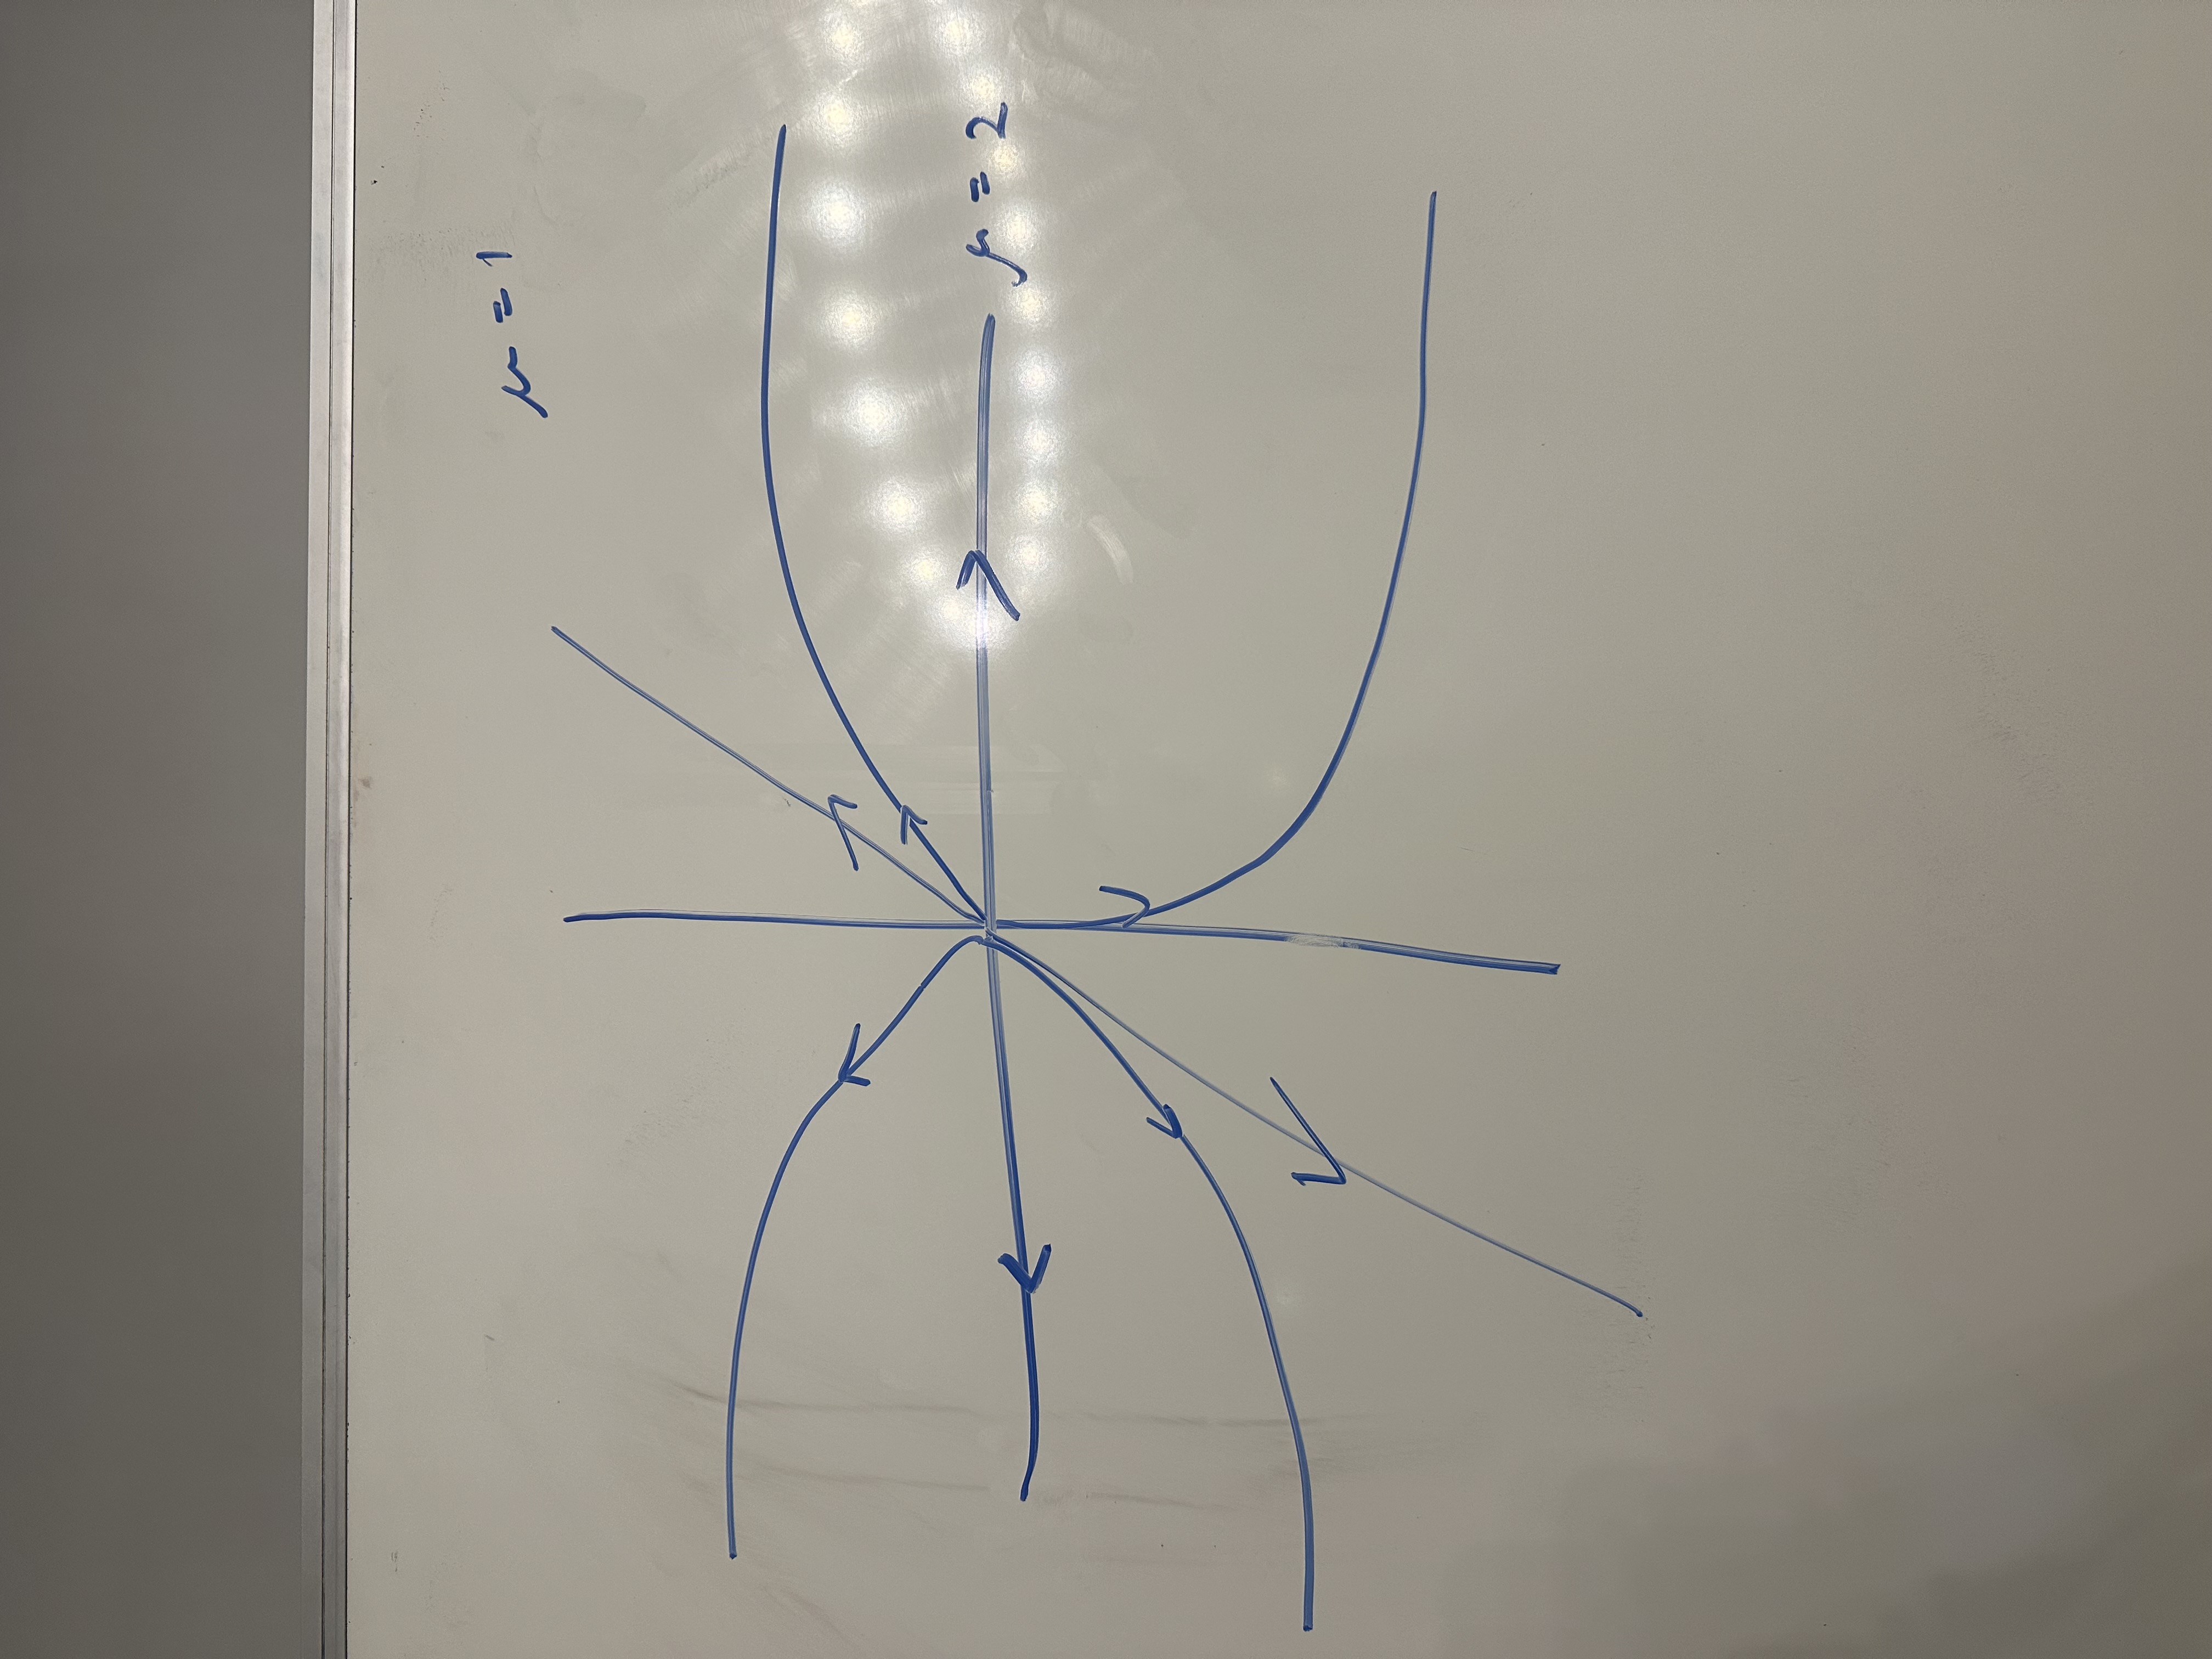 μ = 1
μ = 2